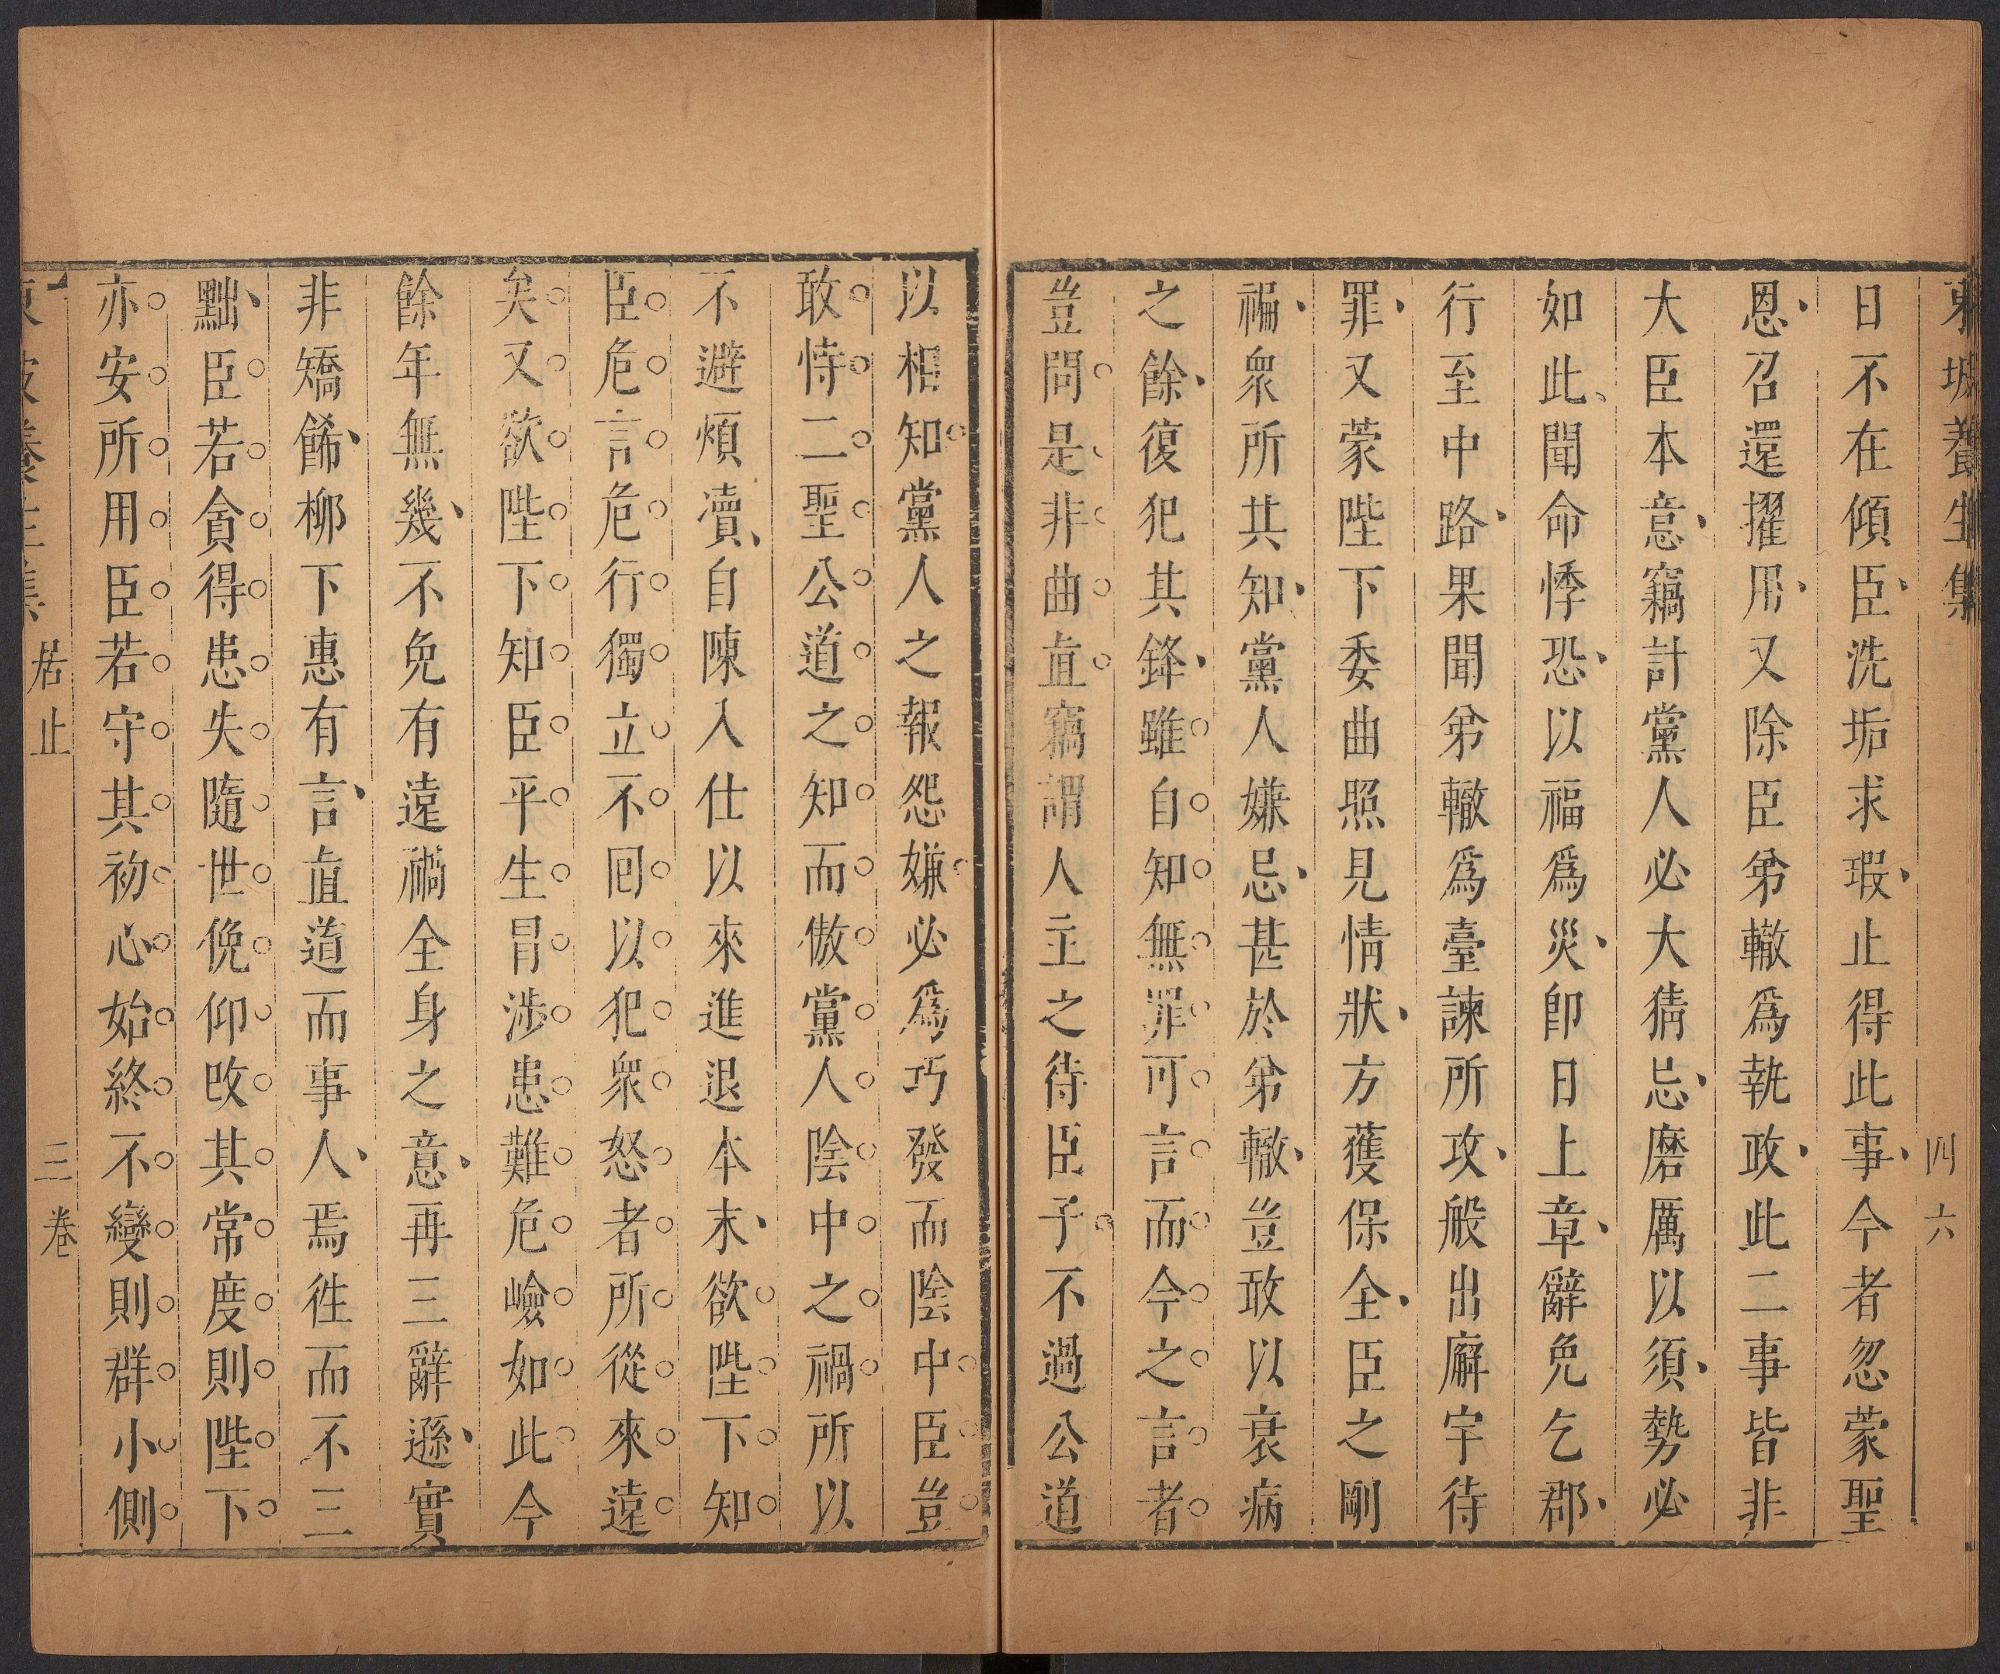 東坡養生集
四六
日不在傾臣洗垢求瑕止得此事今者忽蒙聖
恩召還擢用又除臣弟轍爲執政此二事皆非
大臣本意竊計黨人必大猜忌磨厲以須勢必
如此聞命悸恐以福爲災卽日上章辭免乞郡
行至中路果聞弟轍爲臺諫所攻般出廨宇待
罪又蒙陛下委曲照見情狀方獲保全臣之剛
褊衆所共知黨人嫌忌甚於弟轍豈敢以衰病
之餘復犯其鋒雖自知無罪可言而今之言者
豈問是非曲直竊謂人主之待臣子不過公道
以相知黨人之報怨嫌必爲巧發而陰中臣豈
敢恃二聖公道之知而傲黨人陰中之禍所以
不避煩瀆自陳入仕以來進退本末欲陛下知
臣危言危行獨立不回以犯衆怒者所從來遠
矣又欲陛下知臣平生冒涉患難危嶮如此今
餘年無幾不免有遠禍全身之意再三辭遜實
非矯餙柳下惠有言直道而事人焉徃而不三
黜臣若貪得患失隨世俛仰改其常度則陛下
亦安所用臣若守其初心始終不變則群小側
東坡養生集
居止
三卷